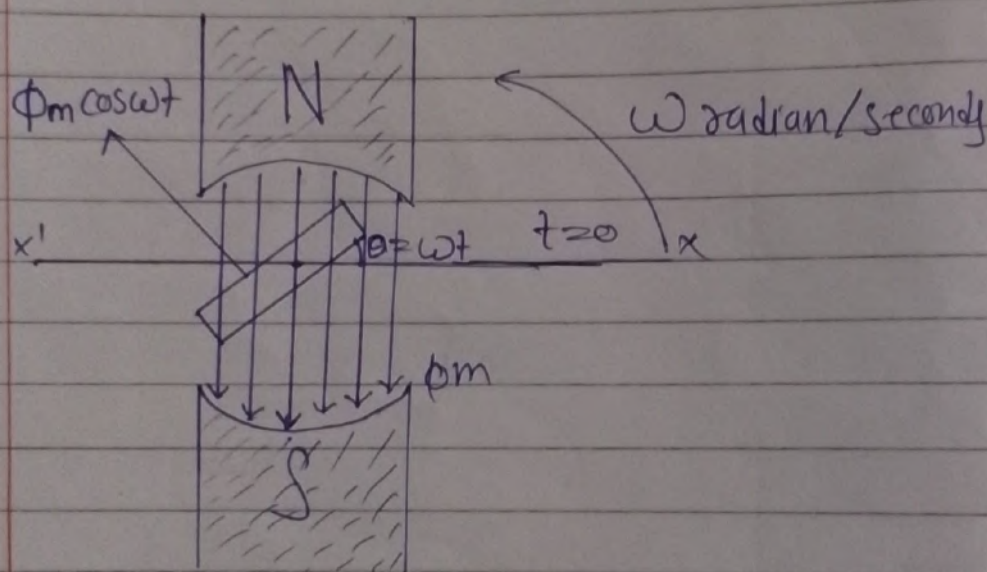 N
ϕm cosωt
ω radian/seconds
x'
θ=ωt
t=0
x
ϕm
S